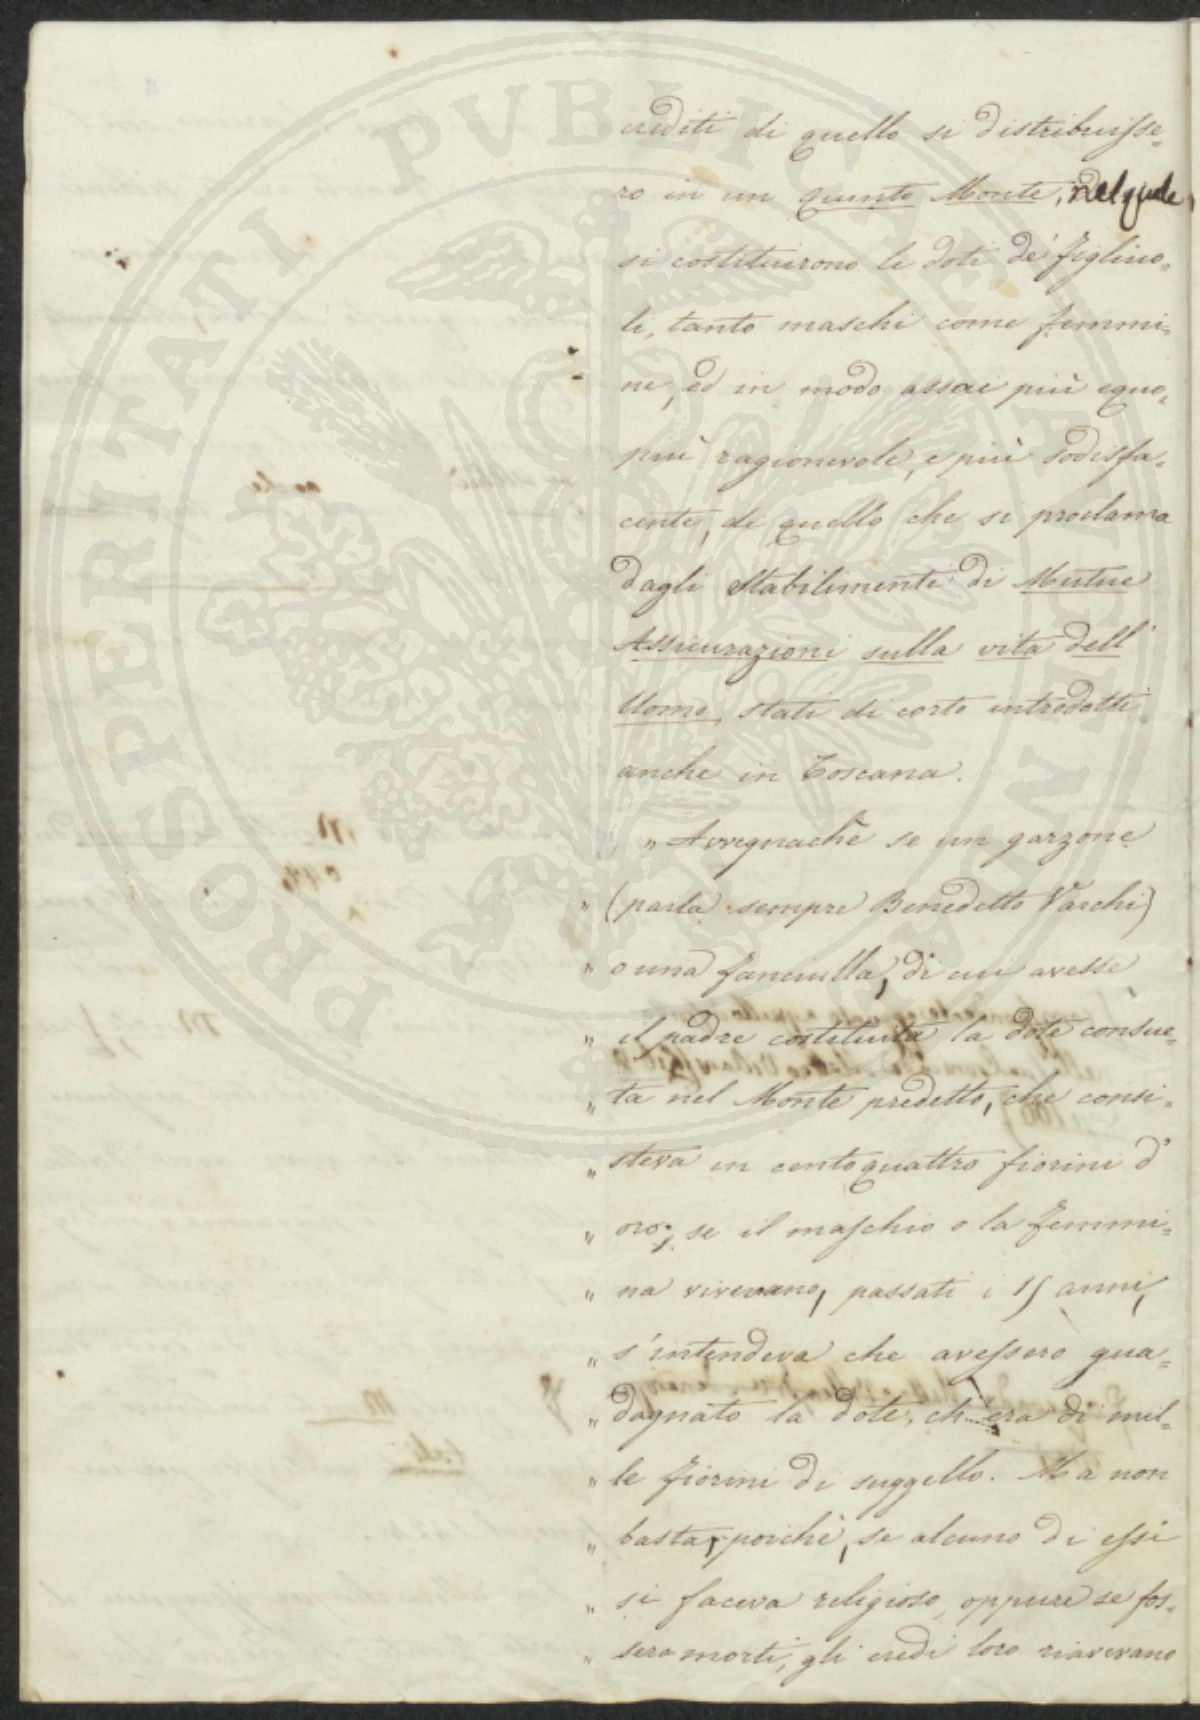 crediti di quello si distribuisse-
ro in un quinto Monte, nel quale,
si costituirono le doti de' figliuo-
li, tanto maschi come femmi-
ne, ed in modo assai più equo,
più ragionevole, e più sodisfa-
cente, di quello che si proclama
dagli Stabilimenti di Mutue
Assicurazioni sulla vita dell'
Uomo, stati di corto introdotti
anche in Toscana.
" Avvegnachè se un garzone
" (parla sempre Benedetto Varchi)
" o una fanciulla, di cui avesse
" il padre costituita la dote consue-
" ta nel Monte predetto, che consi-
" steva in centoquattro fiorini d'
" oro; se il maschio o la femmi-
" na vivevano, passati i 15 anni,
" s'intendeva che avessero gua-
" dagnato la dote, ch'era di mil-
" le fiorini di suggello. Ma non
" basta, poichè, se alcuno di essi
" si faceva religioso, oppure se fos-
" sero morti, gli eredi loro riavevano
PROSPERITATI PVBLICAE AVGENDAE